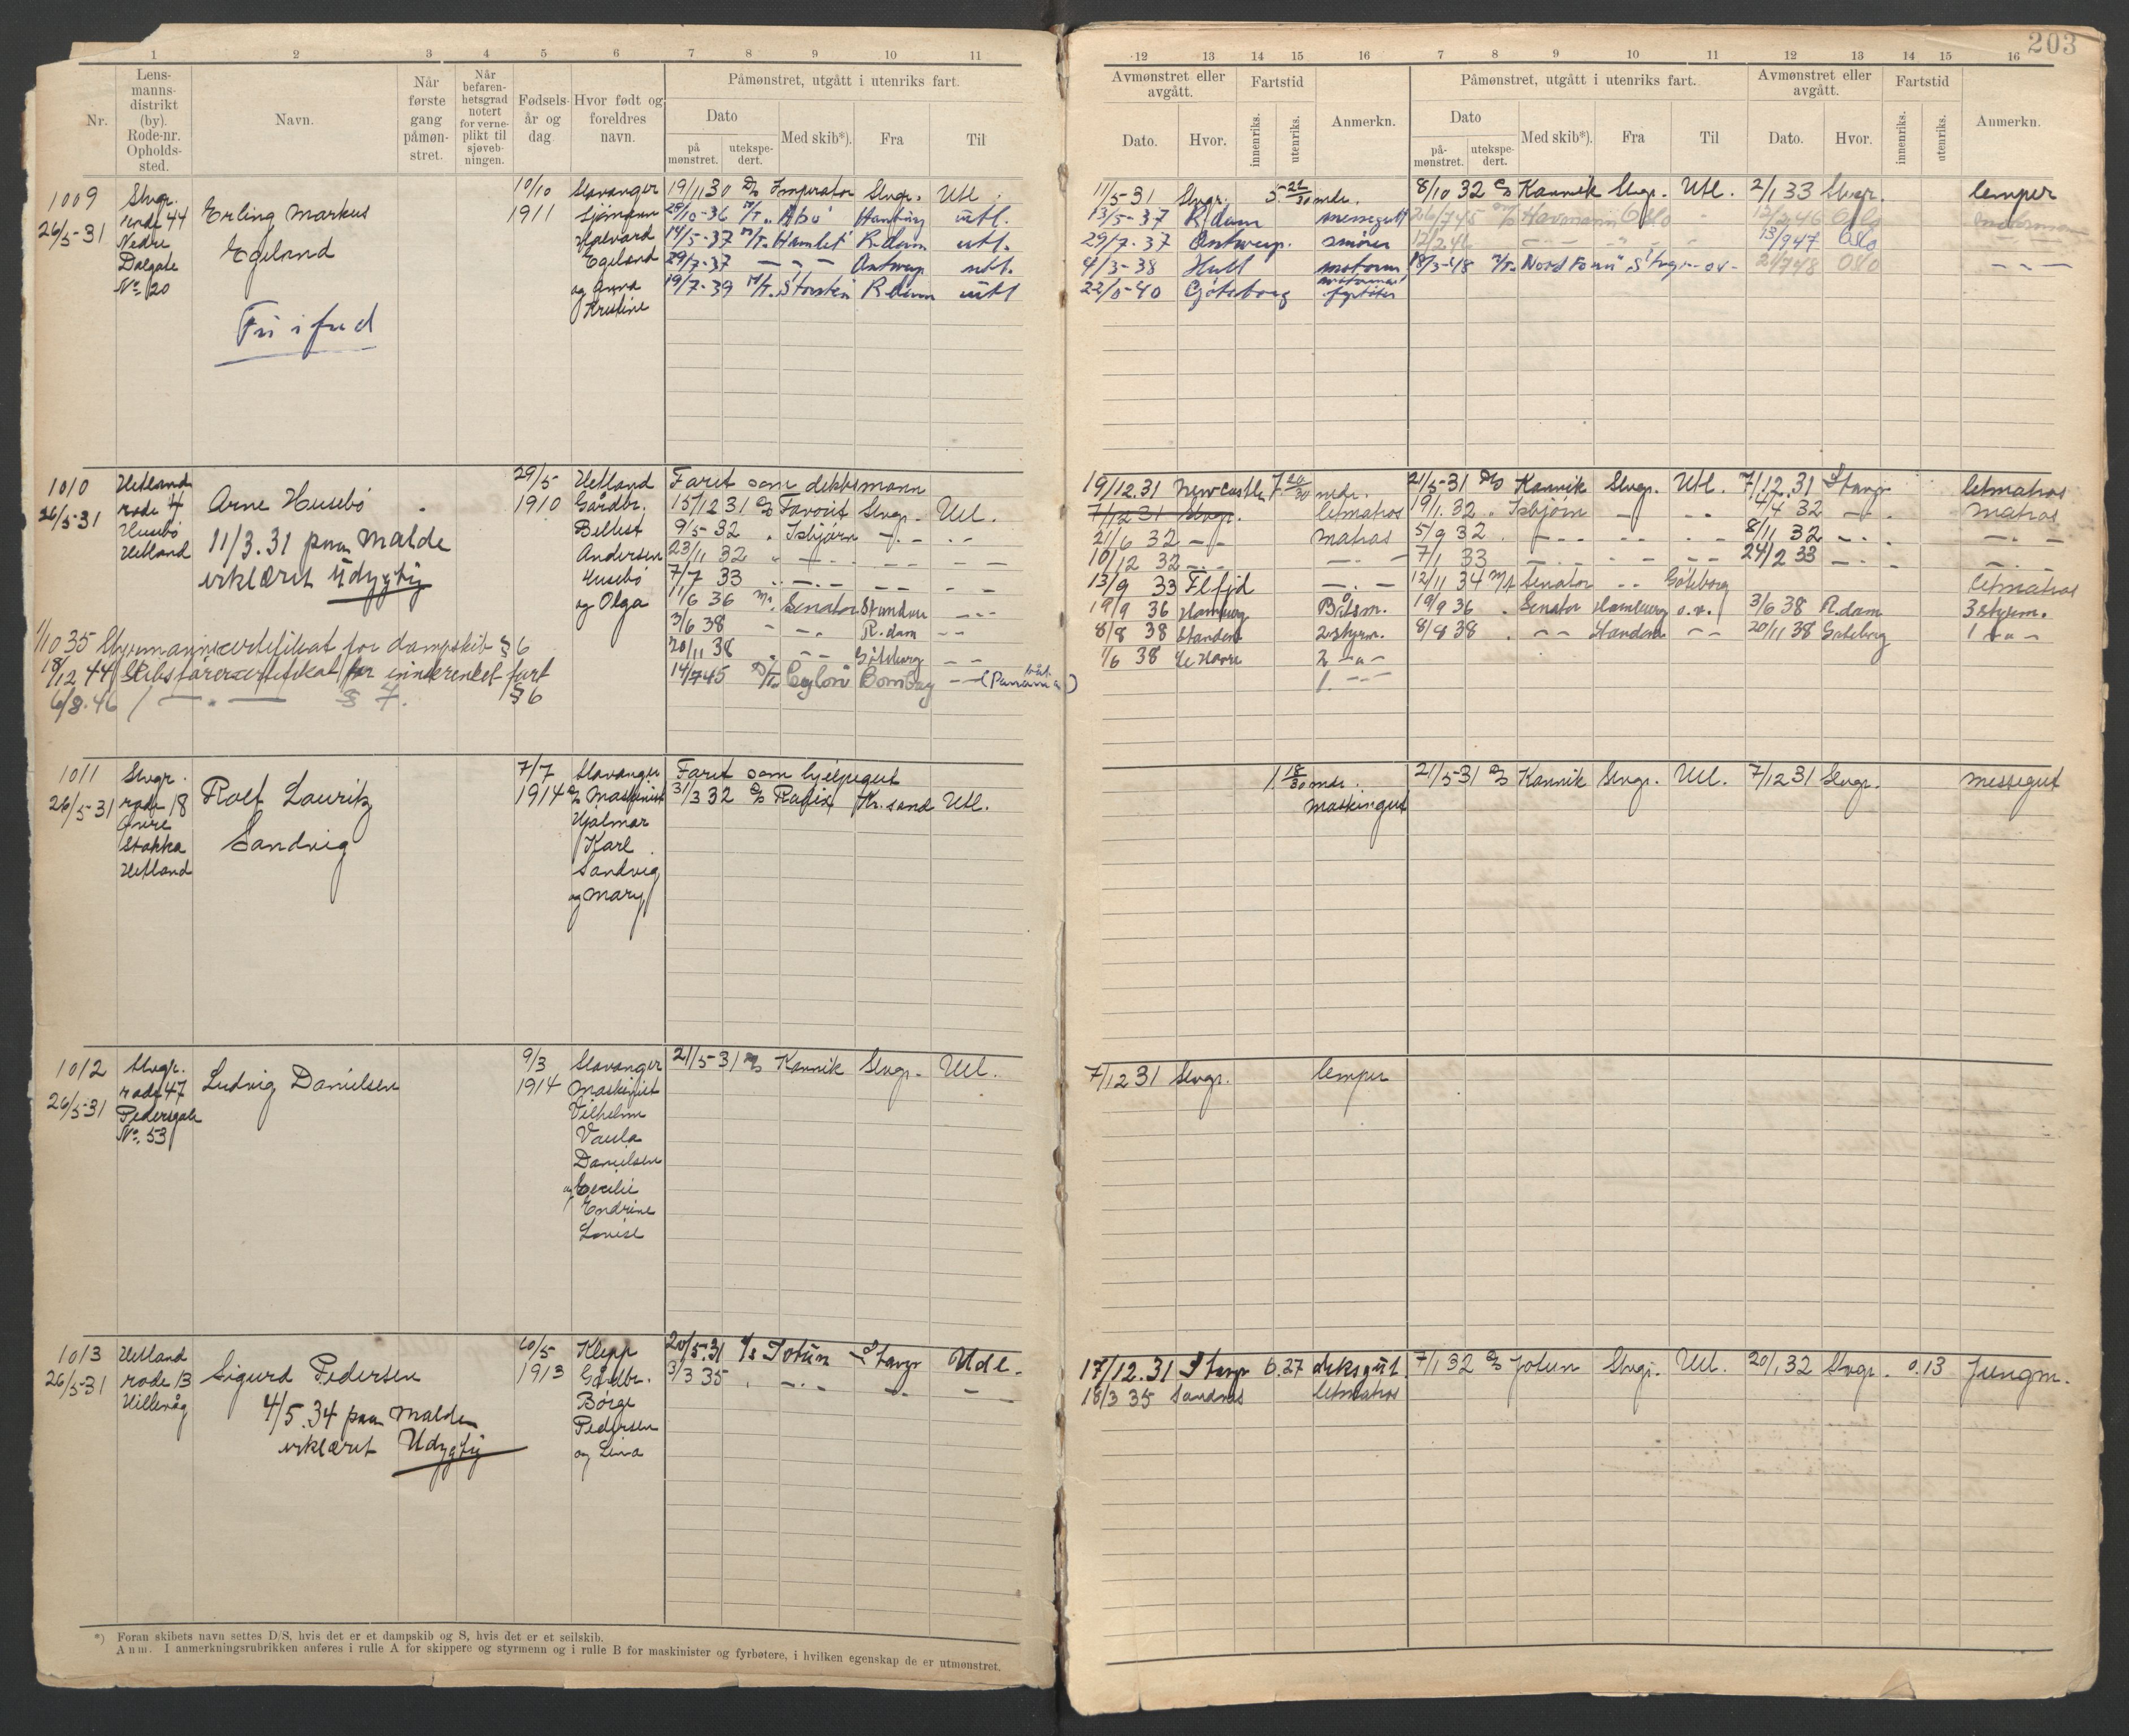 203
1 2 3 4 5 6 7 8 9 10 11
Nr. Lensmanns-distrikt (by). Rode-nr. Opholds-sted. Navn. Når første gang påmønstret. Når befarenhetsgrad notert for verneplikt til sjøvebningen. Fødsels-år og dag. Hvor født og foreldres navn.
Påmønstret, utgått i utenriks fart.
Dato Med skib*). Fra Til
på mønstret. utekspedert.
12 13 14 15 16 7 8 9 10 11 12 13 14 15 16
Avmønstret eller avgått. Fartstid Anmerkn. Påmønstret, utgått i utenriks fart. Avmønstret eller avgått. Fartstid Anmerkn.
Dato. Hvor. innenriks. utenriks. Dato Med skib*). Fra Til Dato. Hvor. innenriks. utenriks.
på-mønstret. utekspedert.
1009 Stvgr. 10/10 Stavanger 19/11 30 D/S Imperator Stvgr. Utl.
26/5-31 rode 44 Erling Markus 1911 Sjømann 29/10-36 M/T. Abu Hamburg utl.
Nedre Egeland Halvard 14/5-37 M/T. Hamlet R.dam utl.
Dalgate Egeland 29/7-37 — — — Antwerp utl.
No. 20 og Anna 19/7-39 M/T. Storsten R.dam utl
Kristine
Fri i fred
11/5-31 Stvgr. 5 21/30 mdr. 8/10 32 D/S Kannik Stvgr. Utl. 2/1 33 Stvgr. lemper
13/5-37 R.dam messegutt 26/7 45 Havmann Oslo 12/2 46 Oslo
29/7-37 Antwerp. smører 12/2 46 13/9 47 Oslo
4/3-38 Hull motorm 18/3-48 Nord Fonn Stvgr. 21/7 48 Oslo
22/5-40 Göteborg
1010 Hetland 29/5 Hetland Faret som dekksmann
26/5-31 rode 4 Arne Husebø 1910 Gårdbr. 15/12 31 D/S Favorit Stvgr. Utl.
Husebø Bellest 9/5-32 Isbjørn
Hetland Andersen 23/11 32
11/3.31 paa Malde Husebø 7/7 33
erklæret Udygtig og Olga 11/6 36 M/T Senator Standen
3/6 38 R.dam
20/11 38 Göteborg
14/7 45 D/T Ceylon Bombay (Panama)
1/10 35 Styrmannscertifikat for dampskib § 6
18/12 44 Skibsførercertifikat for innskrenket fart § 6
6/8.46 § 7.
19/12.31 Newcastle 7 20/30 mdr. 21/5-31 D/S Kannik Stvgr. Utl. 7/12.31 Stavgr letmatros
7/12 31 Stvgr. letmatros 19/1.32 Isbjørn 4/4 32 matros
21/6 32 matros 5/9 32 8/11 32
10/12 32 7/1 33 24/2 33
13/9 33 Flfjd 12/11 34 M/T Senator Göteborg letmatros
19/9 36 Hamburg Båtsm. 19/9 36 Senator Hamburg o.v. 3/6 38 R.dam 3 styrm.
8/8 38 Standen 2 styrm. 8/8 38 Standen 20/11 38 Göteborg 1 — " —
1/6 38 Le Havre 2 — " —
1. — —
1011 Stvgr. 7/7 Stavanger Faret som hjelpegut
26/5-31 rode 18 Rolf Lauritz 1914 Maskinist 31/3 32 D/S Radix Kr.sand Utl.
Øvre Sandvig Hjalmar
Stokka Karl
Hetland Sandvig
og Mary
1 18/30 mdr. 21/5-31 D/S Kannik Stvgr. Utl. 7/12 31 Stvgr. messegut
Maskingut
1012 Stvgr. 9/3 Stavanger 21/5-31 D/S Kannik Stvgr. Utl.
26/5-31 rode 47 Ludvig Danielsen 1914 Maskinist
Pedersgate Vilhelm
No. 53 Vaula
Danielsen
og Cecilie
Endrine
Lovise
7/12 31 Stvgr. lemper
1013 Hetland 10/5 Klepp 20/5.31 D/S Jotun Stavgr Udl.
26/5-31 rode 13 Sigurd Pedersen 1913 Gårdbr. 3/3 35
Hillevåg Børge
4/5.34 paa Malde Pedersen
erklæret Udygtig og Lina
17/12.31 Stavgr 6.27 deksgut. 7/1 32 D/S Jotun Stvgr. Utl. 20/1 32 Stvgr. 0.13 Jungm.
18/3 35 Sandnes letmatros
*) Foran skibets navn settes D/S, hvis det er et dampskib og S, hvis det er et seilskib.
Anm. I anmerkningsrubrikken anføres i rulle A for skippere og styrmenn og i rulle B for maskinister og fyrbøtere, i hvilken egenskap de er utmønstret.